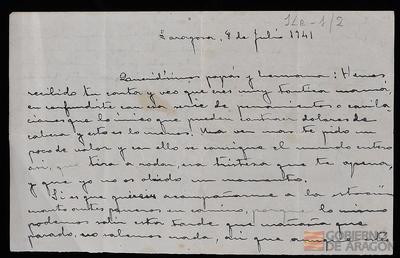 SLR-1/2
Zaragoza, 8 de Julio 1941
Queridísimos papás y hermana: Hemos
recibido tu carta y veo que eres muy tontera mamá,
en confundirte con esa serie de pensamientos o cavila
ciones que lo único que pueden es dolores de
cabeza y esto es lo menos. Una vez más te pido un
poco de valor y con ello se consigue el mundo entero
así, que tira a rodar, esa tristeza que te apena,
y que yo no os olvido un momento.
Si es que quieres acompañarme a la
cuanto antes poneros en camino, porque lo mismo
podemos salir esta tarde que mañana que
pasado, no sabemos nada, así que
GOBIERNO
DE ARAGON